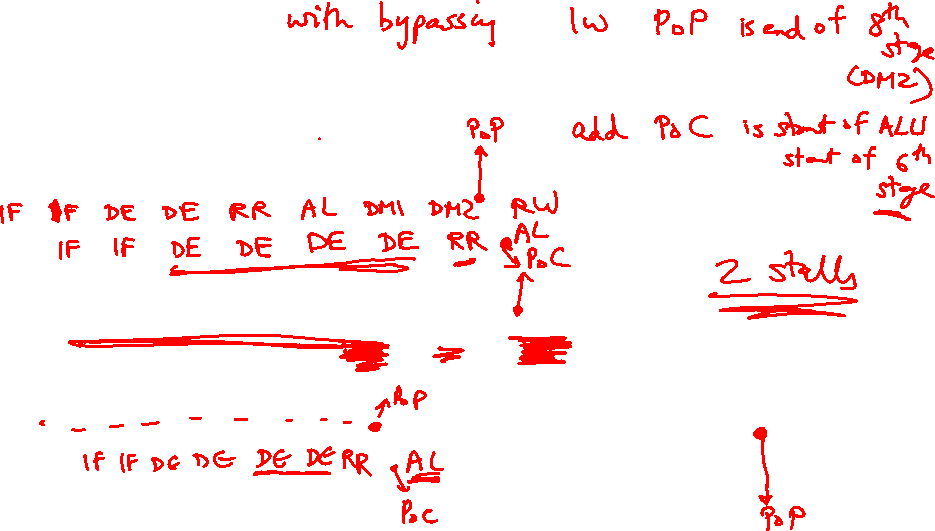 with bypassing lw PoP is end of 8th
stage
(DM2)
PoP add PoC is start of ALU
start of 6th
stage
IF IF DE DE RR AL DM1 DM2 RW
IF IF DE DE DE DE RR AL
PoC
2 stalls
PoP
IF IF DE DE DE DE RR AL
PoC
PoP